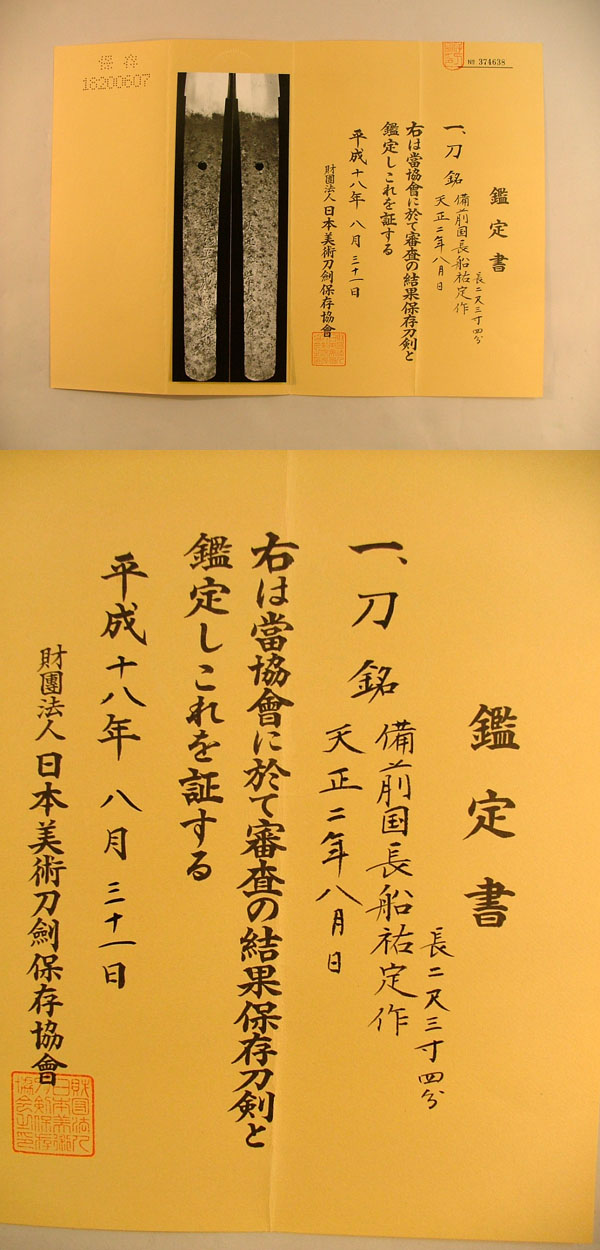 保存
18200607
№ 374638
鑑定書
一、刀 銘 備前国長船祐定作
天正二年八月日
長二尺三寸四分
右は當協會に於て審査の結果保存刀剣と
鑑定しこれを証する
平成十八年 八月 三十一日
財團法人 日本美術刀劍保存協會
鑑定書
長二尺三寸四分
一、刀 銘 備前国長船祐定作
天正二年八月日
右は當協會に於て審査の結果保存刀剣と
鑑定しこれを証する
平成十八年 八月 三十一日
財團法人 日本美術刀劍保存協會